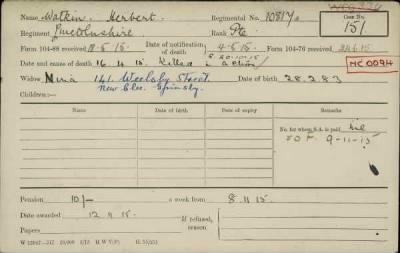 Name, Watkin. Herbert. Regimental No. 10817
Case No. 151
Regiment, Lincolnshire Rank Pte
Form 104-88 received 18.5.15. Date of notification of death 4.5.15. Form 104-76 received
Date and cause of death 16.4.15. Killed in action
MC 0094
Widow 141. Street. Date of birth 28.2.83
New Clee. Grimsby.
Children:—
Date of Birth. Date of expiry. Remarks.
No. for whom S.A. is paid nil
9-11-15
Pension 10/- a week from 8.11.15.
Date awarded 12.11.15. If refused, reason
Papers